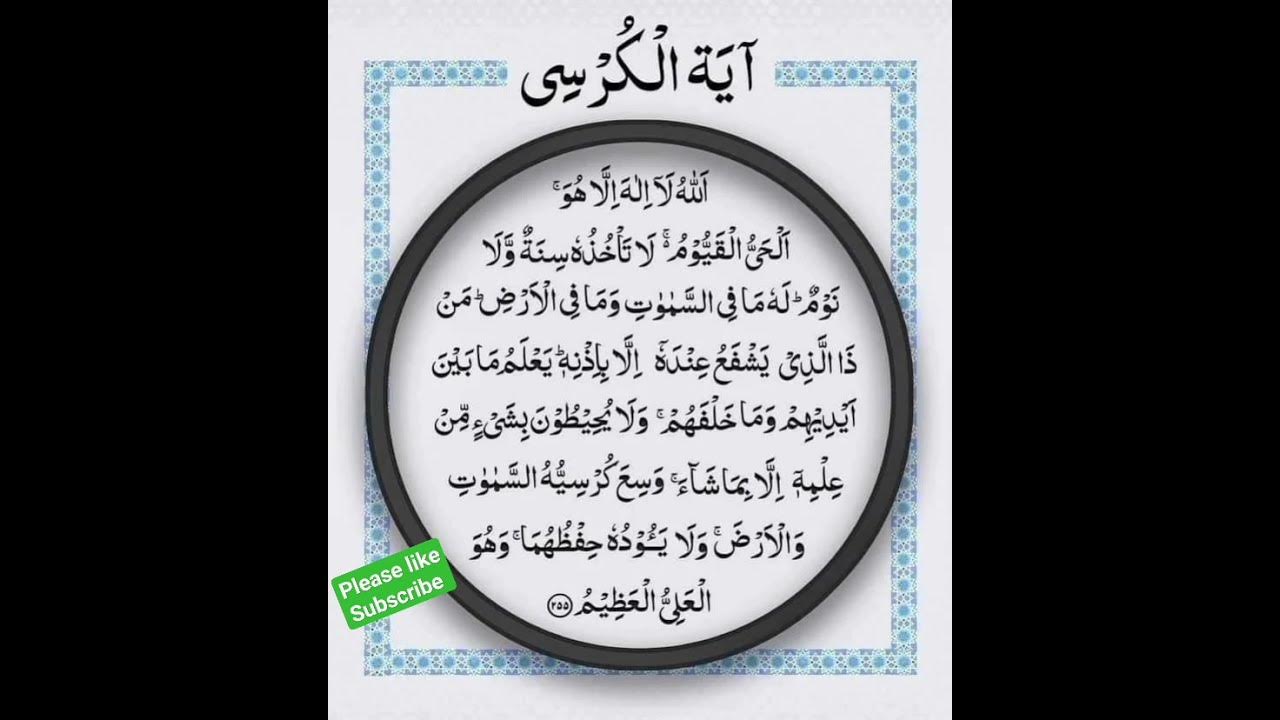 آيَةُ الْكُرْسِى
اَللّٰهُ لَآ اِلٰهَ اِلَّا هُوَ ۚ
اَلْحَىُّ الْقَيُّوْمُ ۬ۚ لَا تَاْخُذُهٗ سِنَةٌ وَّلَا
نَوْمٌ ؕ لَهٗ مَا فِى السَّمٰوٰتِ وَمَا فِى الْاَرْضِ ؕ مَنْ
ذَا الَّذِىْ يَشْفَعُ عِنْدَهٗۤ اِلَّا بِاِذْنِهٖ ؕ يَعْلَمُ مَا بَيْنَ
اَيْدِيْهِمْ وَمَا خَلْفَهُمْ ۚ وَلَا يُحِيْطُوْنَ بِشَىْءٍ مِّنْ
عِلْمِهٖۤ اِلَّا بِمَا شَآءَ ۚ وَسِعَ كُرْسِيُّهُ السَّمٰوٰتِ
وَالْاَرْضَ ۚ وَلَا يَــُٔوْدُهٗ حِفْظُهُمَا ۚ وَهُوَ
الْعَلِىُّ الْعَظِيْمُ ﴿۲۵۵﴾
Please like
Subscribe